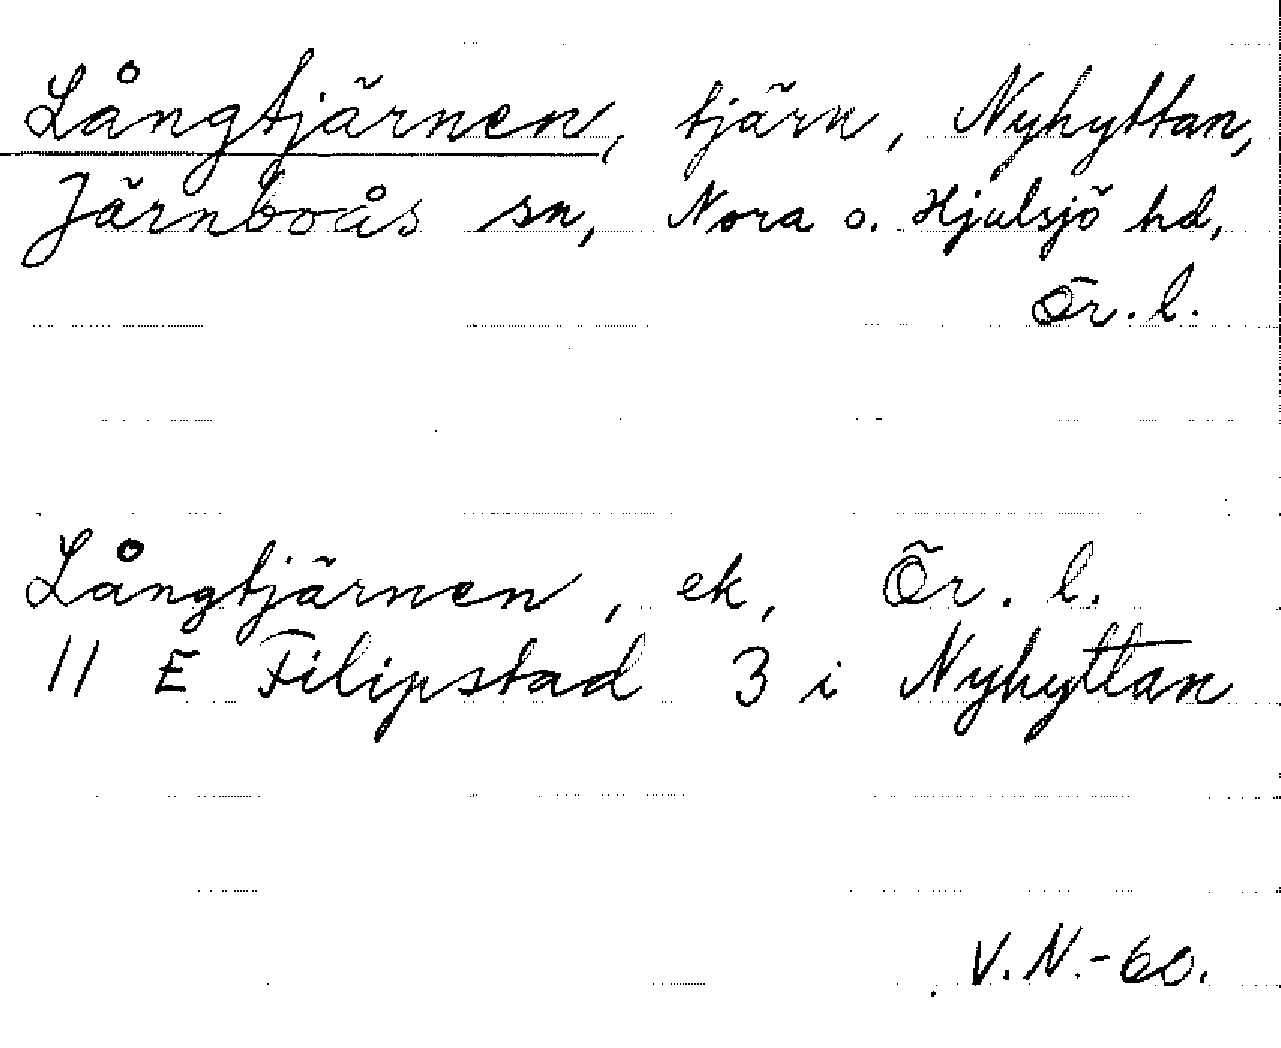 Långtjärnen, tjärn, Nyhyttan,
Järnboås sn, Nora o. Hjulsjö hd,
Ör. l.
Långtjärnen, ek, Ör. l.
11 E Filipstad 3 i Nyhyttan
V.N.-60.